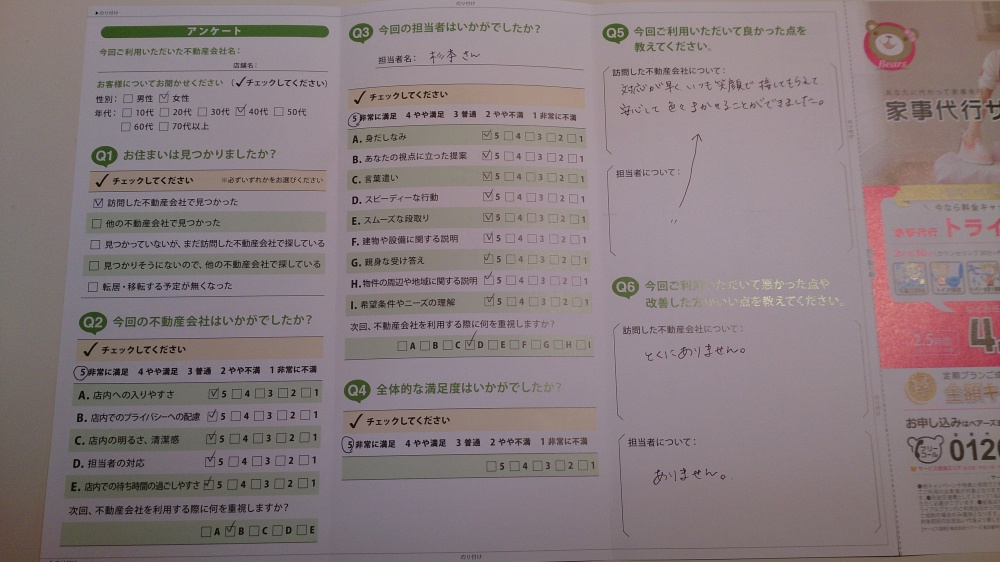 ▶のり付け
アンケート
今回ご利用いただいた不動産会社名：
店舗名：
お客様についてお聞かせください （✓チェックしてください）
性別：□ 男性 ☑ 女性
年代：□ 10代 □ 20代 □ 30代 ☑ 40代 □ 50代
□ 60代 □ 70代以上
Q1 お住まいは見つかりましたか？
✓ チェックしてください ※必ずいずれかをお選びください
☑ 訪問した不動産会社で見つかった
□ 他の不動産会社で見つかった
□ 見つかっていないが、まだ訪問した不動産会社で探している
□ 見つかりそうにないので、他の不動産会社で探している
□ 転居・移転する予定が無くなった
Q2 今回の不動産会社はいかがでしたか？
✓ チェックしてください
5 非常に満足 4 やや満足 3 普通 2 やや不満 1 非常に不満
A. 店内への入りやすさ ☑ 5 □ 4 □ 3 □ 2 □ 1
B. 店内でのプライバシーへの配慮 ☑ 5 □ 4 □ 3 □ 2 □ 1
C. 店内の明るさ、清潔感 ☑ 5 □ 4 □ 3 □ 2 □ 1
D. 担当者の対応 ☑ 5 □ 4 □ 3 □ 2 □ 1
E. 店内での待ち時間の過ごしやすさ ☑ 5 □ 4 □ 3 □ 2 □ 1
次回、不動産会社を利用する際に何を重視しますか？
□ A ☑ B □ C □ D □ E
のり付け
Q3 今回の担当者はいかがでしたか？
担当者名： 杉本さん
✓ チェックしてください
5 非常に満足 4 やや満足 3 普通 2 やや不満 1 非常に不満
A. 身だしなみ ☑ 5 □ 4 □ 3 □ 2 □ 1
B. あなたの視点に立った提案 ☑ 5 □ 4 □ 3 □ 2 □ 1
C. 言葉遣い ☑ 5 □ 4 □ 3 □ 2 □ 1
D. スピーディーな行動 ☑ 5 □ 4 □ 3 □ 2 □ 1
E. スムーズな段取り ☑ 5 □ 4 □ 3 □ 2 □ 1
F. 建物や設備に関する説明 ☑ 5 □ 4 □ 3 □ 2 □ 1
G. 親身な受け答え ☑ 5 □ 4 □ 3 □ 2 □ 1
H. 物件の周辺や地域に関する説明 ☑ 5 □ 4 □ 3 □ 2 □ 1
I. 希望条件やニーズの理解 ☑ 5 □ 4 □ 3 □ 2 □ 1
次回、不動産会社を利用する際に何を重視しますか？
□ A □ B □ C ☑ D □ E □ F □ G □ H □ I
Q4 全体的な満足度はいかがでしたか？
✓ チェックしてください
5 非常に満足 4 やや満足 3 普通 2 やや不満 1 非常に不満
□ 5 □ 4 □ 3 □ 2 □ 1
のり付け
Q5 今回ご利用いただいて良かった点を
教えてください。
訪問した不動産会社について：
対応が早く、いつも笑顔で接してもらえて
安心して色々まかせることができました。
担当者について：
〃
Q6 今回ご利用いただいて悪かった点や
改善した方がいい点を教えてください。
訪問した不動産会社について：
とくにありません。
担当者について：
ありません。
Bears
あなたに代わって家事を
家事代行サ
今なら料金キャ
家事代行 トライ
2.5時間
定期プランご成
全額キ
お申し込みはベアーズま
フリーコール 0120